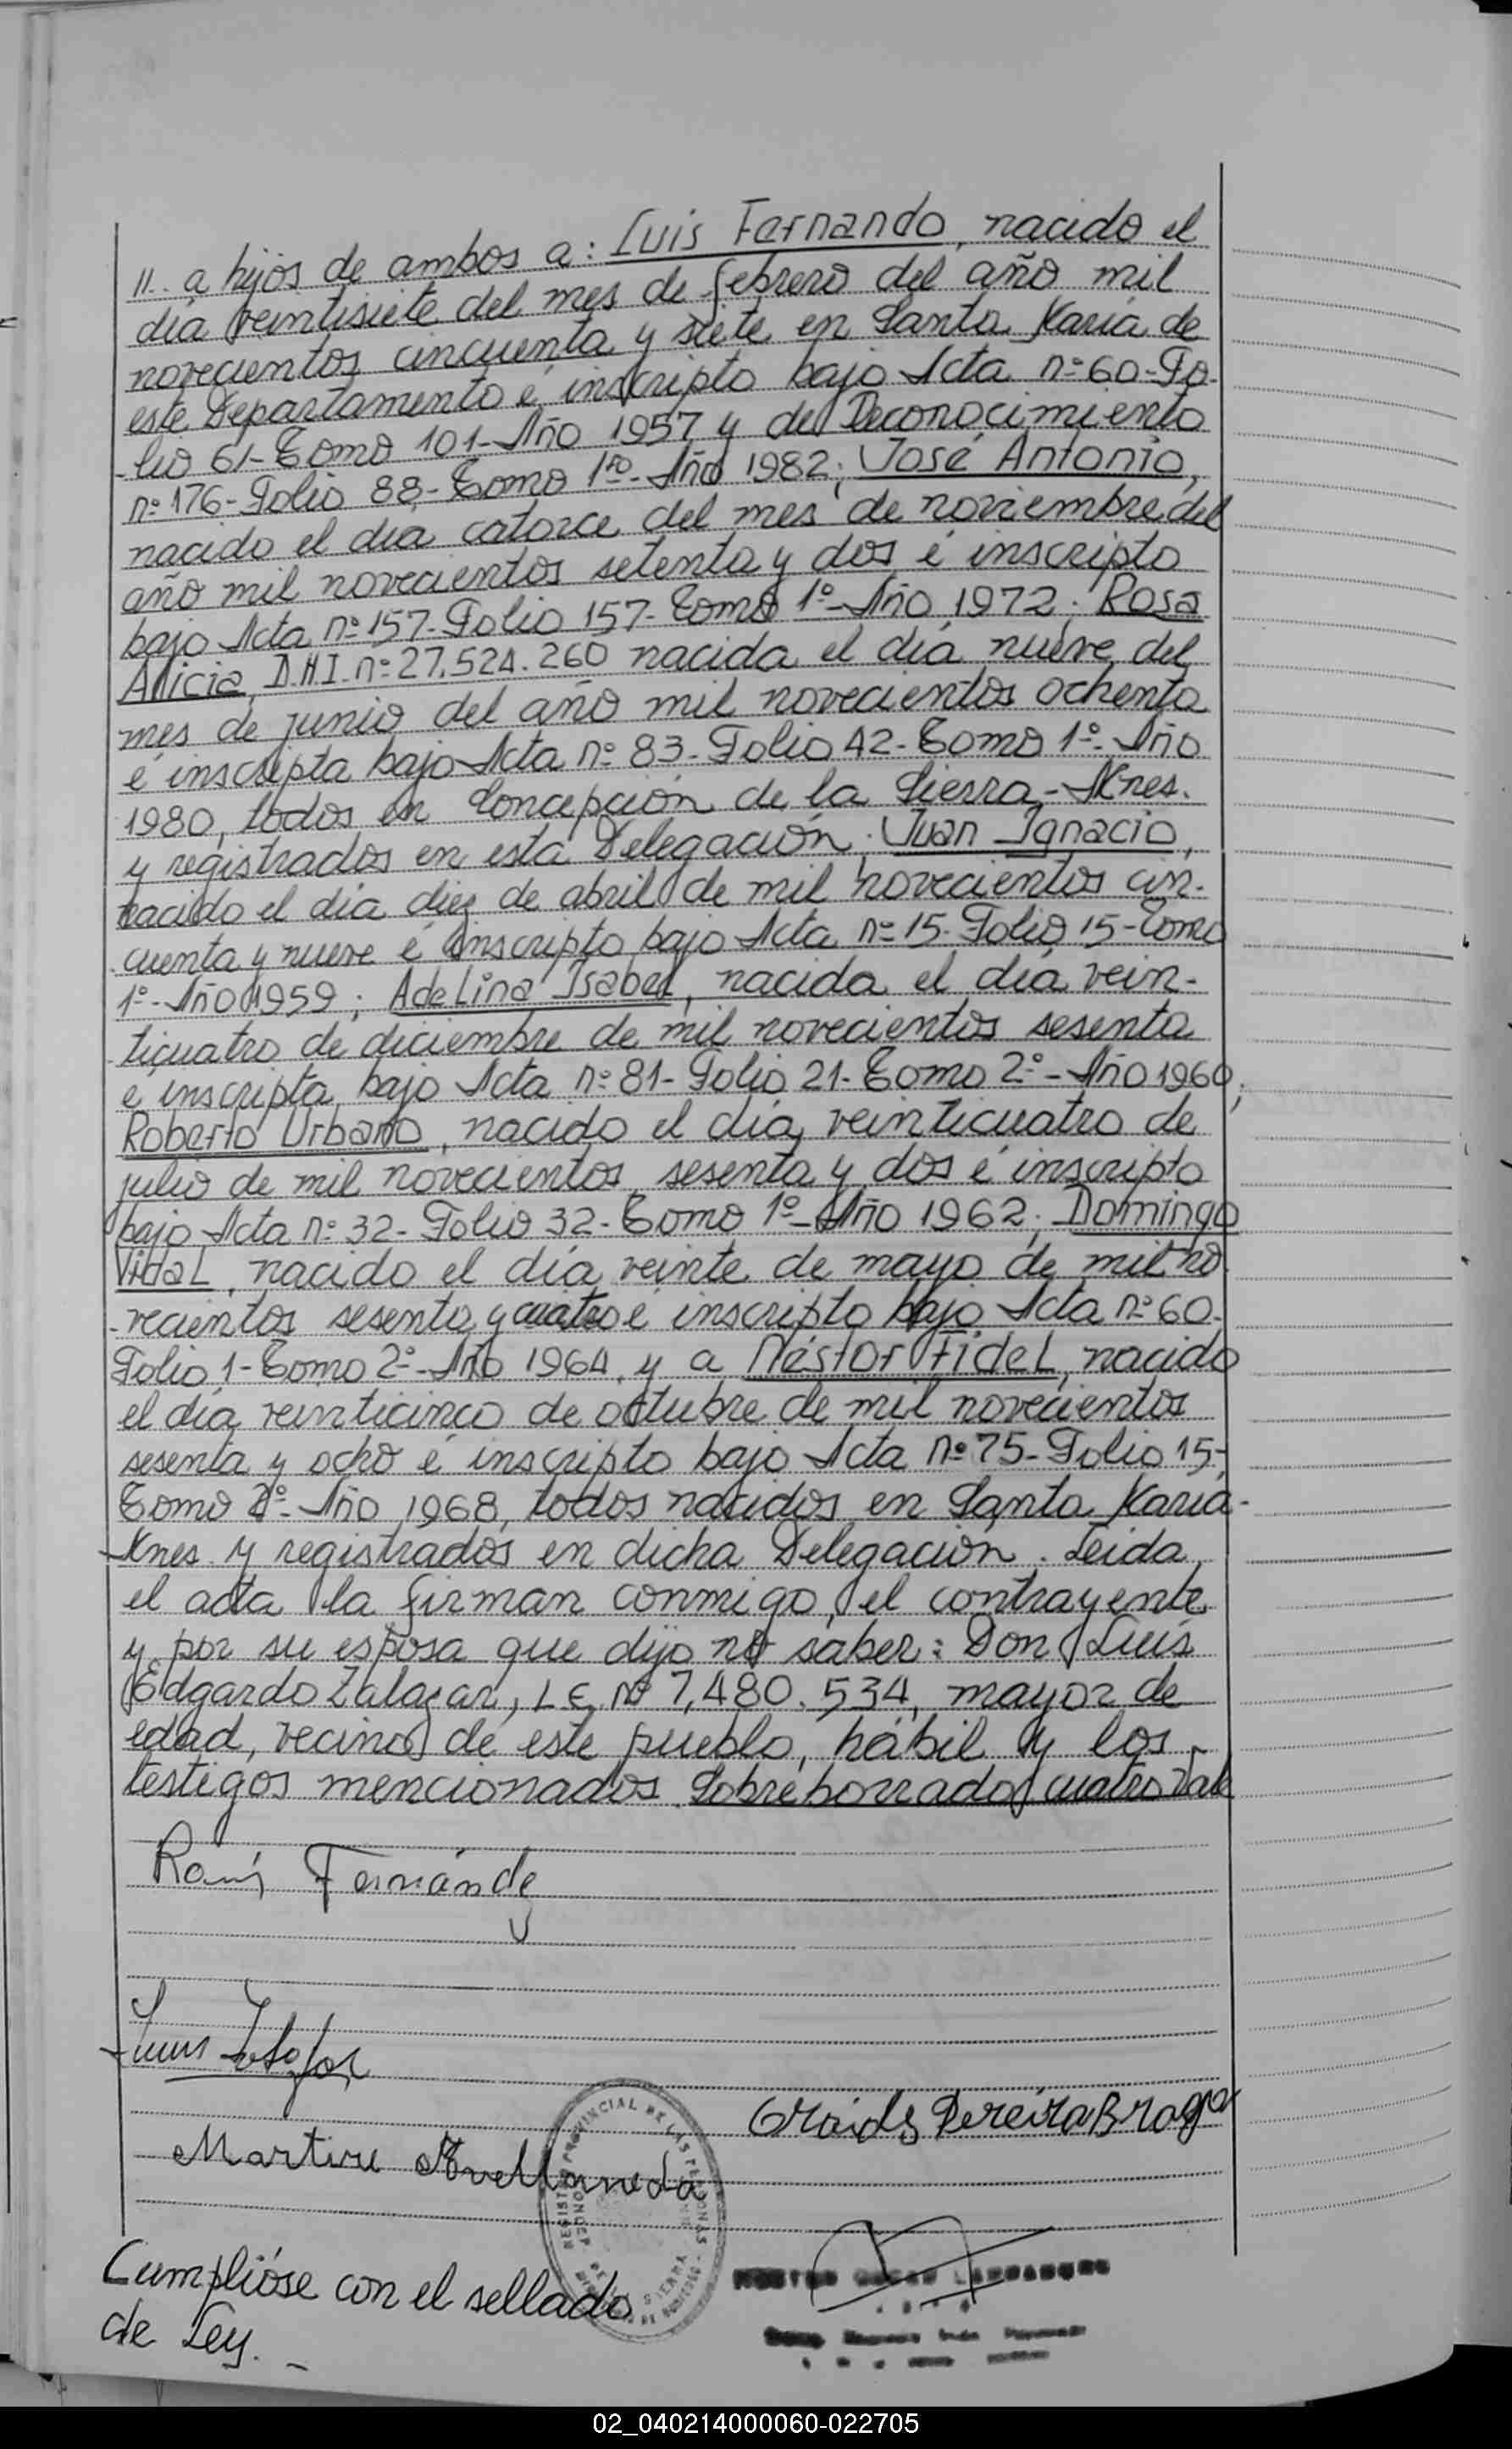 11.. a hijos de ambos a: Luis Fernando, nacido el
día veintisiete del mes de febrero del año mil
novecientos cincuenta y siete en Santa María de
este Departamento é inscripto bajo Acta nº 60-Fo-
-lio 61-Tomo 101-Año 1957 y de Reconocimiento
nº 176-Folio 88-Tomo 1ro-Año 1982; José Antonio,
nacido el día catorce del mes de noviembre del
año mil novecientos setenta y dos é inscripto
bajo Acta nº 157-Folio 157-Tomo 1º-Año 1972; Rosa
Alicia, D.N.I. nº 27.524.260 nacida el día nueve del
mes de junio del año mil novecientos ochenta
é inscripta bajo Acta nº 83-Folio 42-Tomo 1º-Año
1980, todos en Concepción de la Sierra-Mnes.
y registrados en esta Delegación; Juan Ignacio,
nacido el día diez de abril de mil novecientos cin-
-cuenta y nueve é inscripto bajo Acta nº 15-Folio 15-Tomo
1º-Año 1959; Adelina Isabel, nacida el día vein-
-ticuatro de diciembre de mil novecientos sesenta
é inscripta bajo Acta nº 81-Folio 21-Tomo 2º-Año 1960;
Roberto Urbano, nacido el día veinticuatro de
julio de mil novecientos sesenta y dos é inscripto
bajo Acta nº 32-Folio 32-Tomo 1º-Año 1962; Domingo
Vidal, nacido el día veinte de mayo de mil no-
-vecientos sesenta y cuatro é inscripto bajo Acta nº 60-
Folio 1-Tomo 2º-Año 1964, y a Néstor Fidel, nacido
el día veinticinco de octubre de mil novecientos
sesenta y ocho é inscripto bajo Acta nº 75-Folio 15-
Tomo 2º-Año 1968, todos nacidos en Santa María-
Mnes y registrados en dicha Delegación. Leida
el acta la firman conmigo, el contrayente
y por su esposa que dijo no saber: Don Luis
Edgardo Zalazar, L.E. Nº 7.480.534, mayor de
edad, vecino de este pueblo, hábil y los
testigos mencionados. Sobreborrado cuatro Vale
Fernández
Luis Zalazar
Pereira Braga
Martin Avellaneda
Cumplióse con el sellado
de Ley. -
02_040214000060-022705